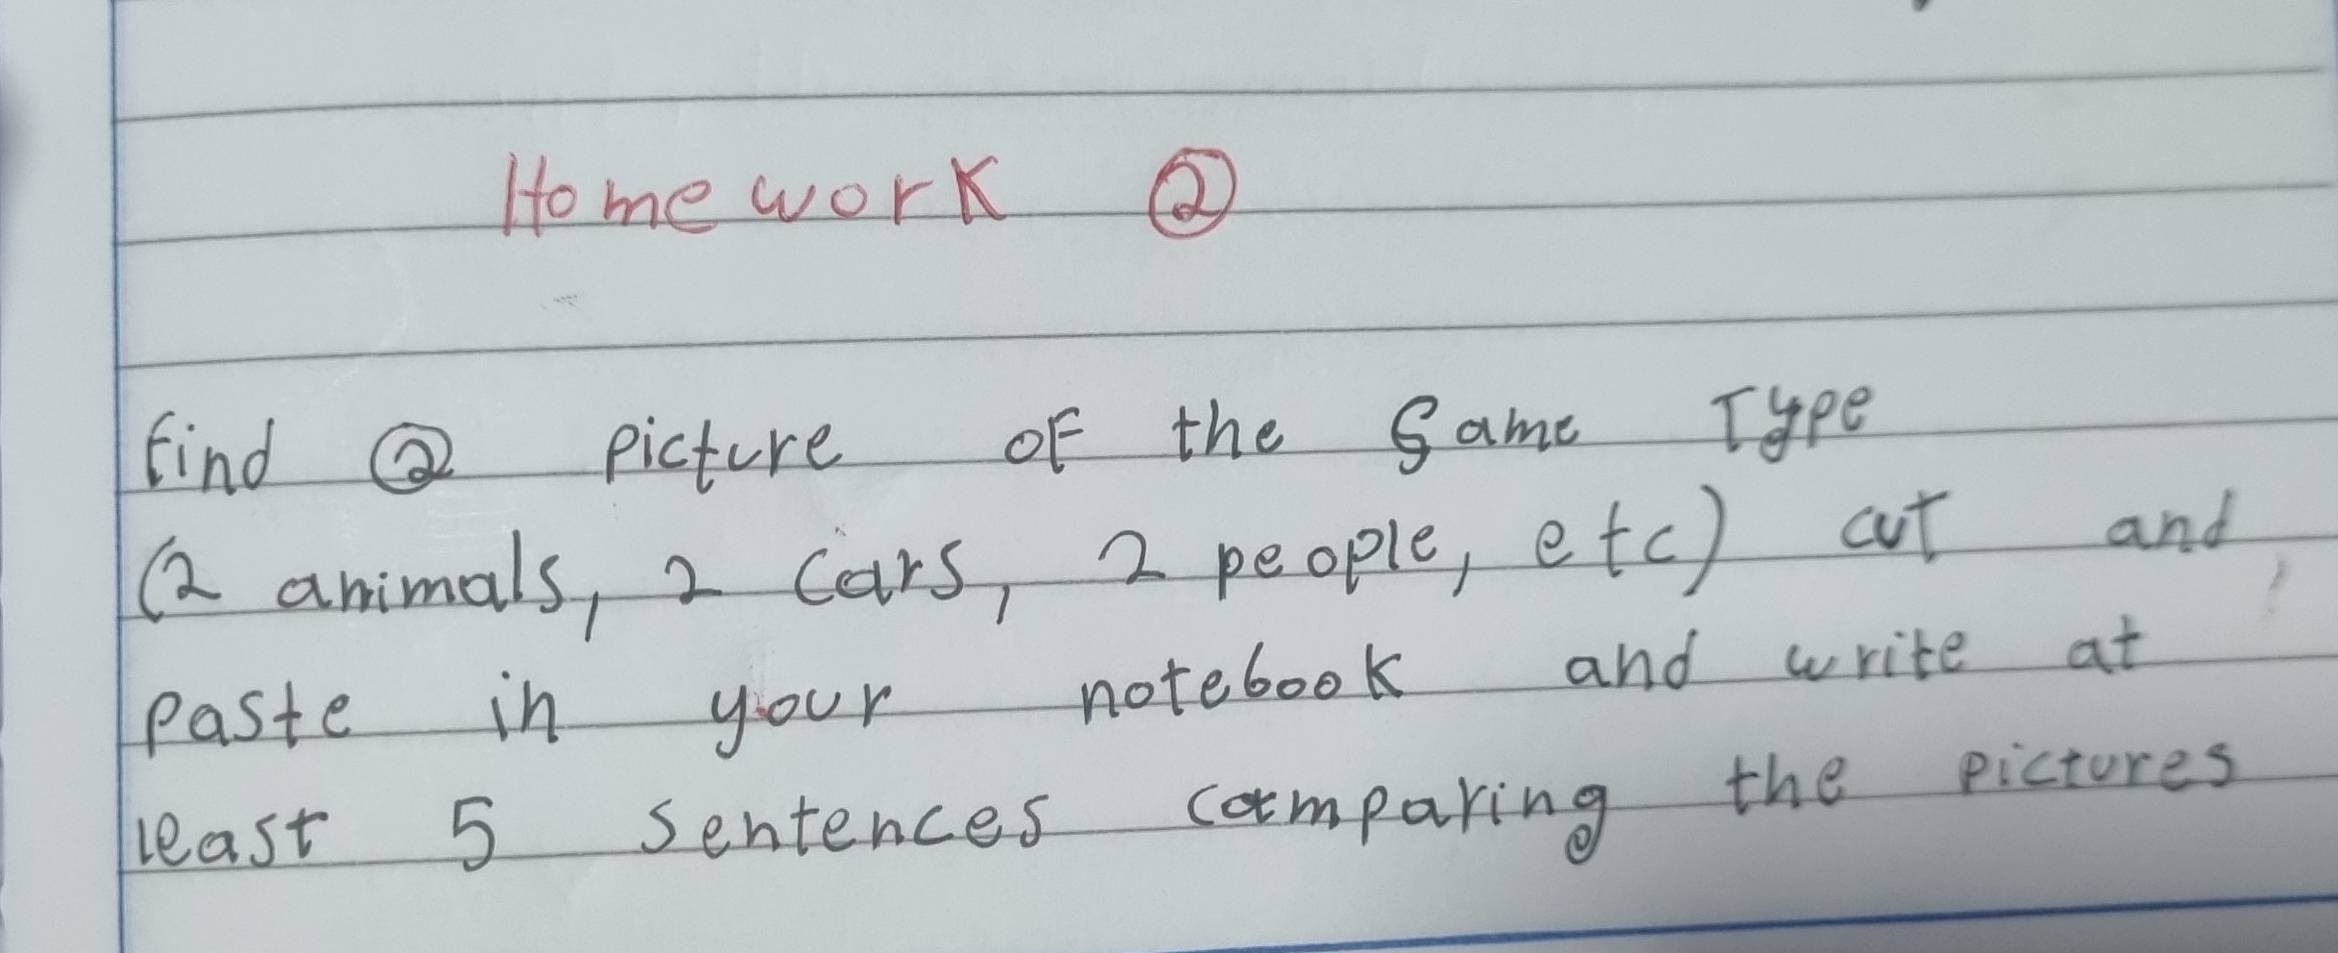 Homework ②
Find ② picture of the Same Type
(2 animals, 2 Cars, 2 people, etc) cut and
paste in your notebook and write at
least 5 sentences comparing the pictures